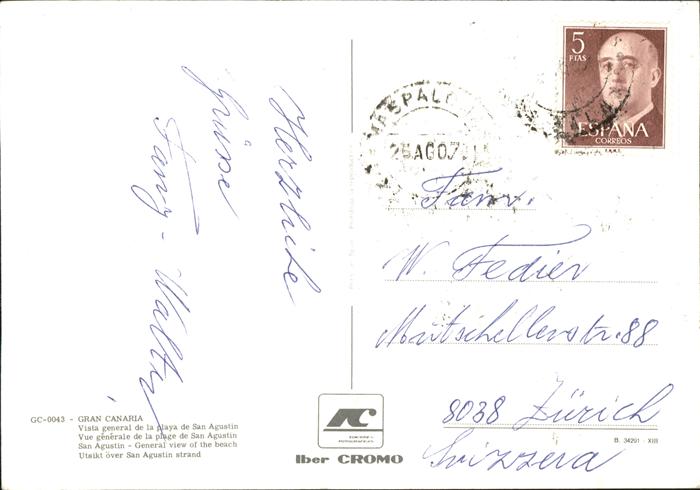 Herzliche
Grüsse
Fany - Walti
GC-0043 - GRAN CANARIA
Vista general de la playa de San Agustin
Vue générale de la plage de San Agustin
San Agustin - General view of the beach
Utsikt över San Agustin strand
Iber CROMO
5
PTAS
ESPAÑA
CORREOS
F.N.M.T.
MASPAL
25 AGO 7
Fam.
W. Fedier
Mutschellenstr. 88
8038 Zürich
Svizzera
B. 34291 - XIII